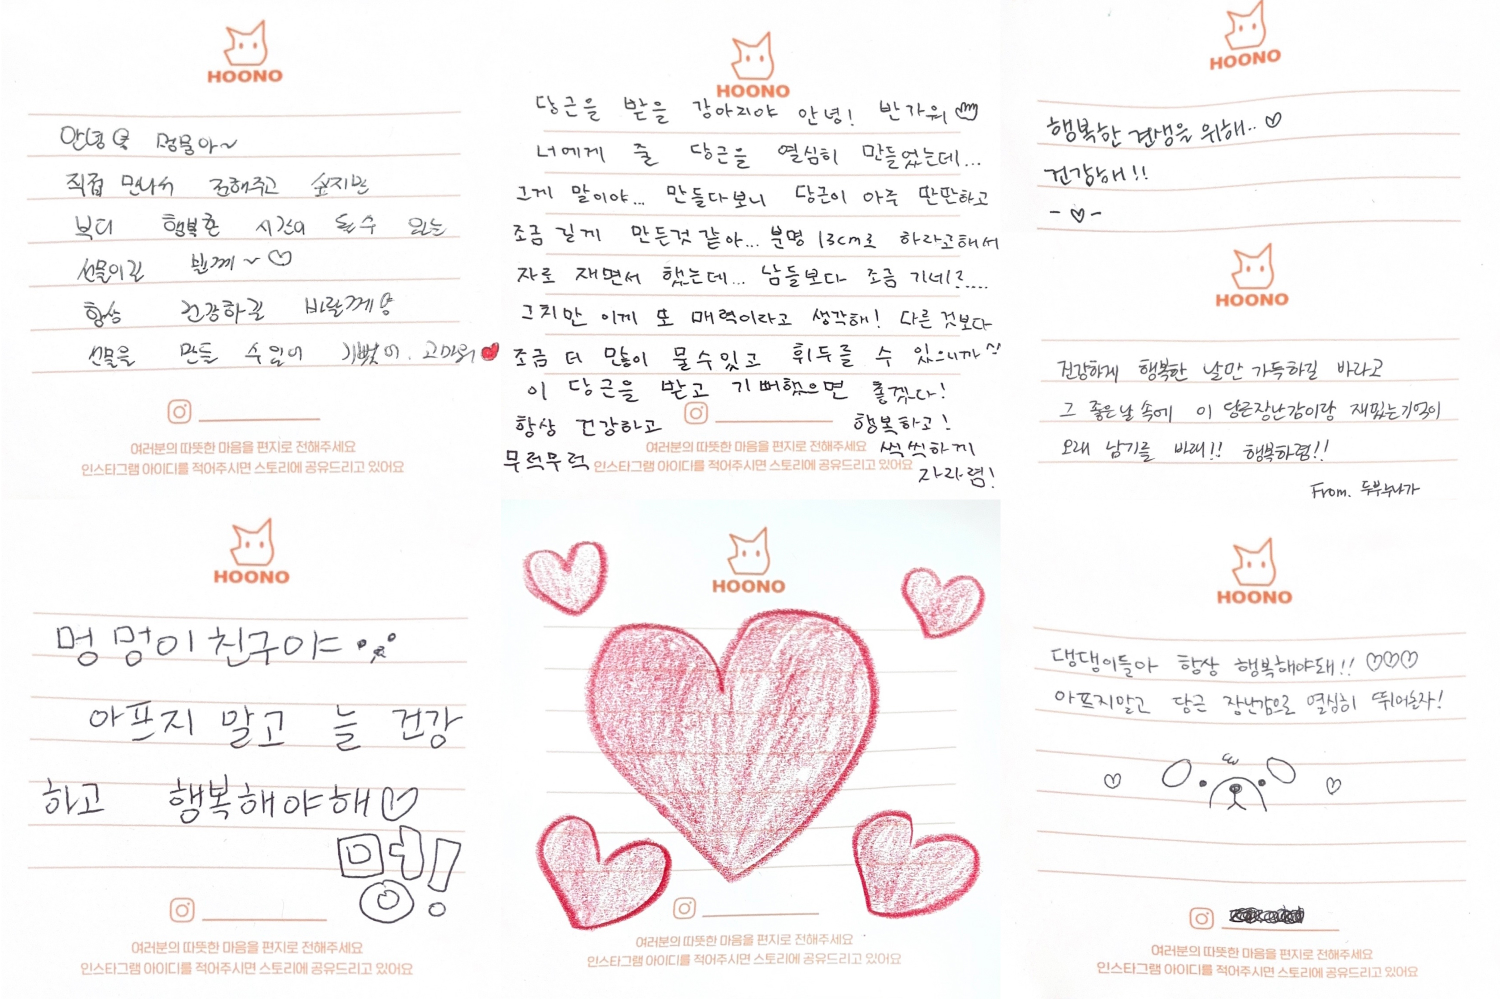 HOONO
안녕 멍뭉아~
직접 만나서 전해주고 싶지만
부디 행복한 시간이 될수 있는
선물이길 빌께~♡
항상 건강하길 바랄께양
선물을 만들 수있어 기뻤어. 고마워♥
여러분의 따뜻한 마음을 편지로 전해주세요
인스타그램 아이디를 적어주시면 스토리에 공유드리고 있어요
HOONO
당근을 받을 강아지야 안녕! 반가워
너에게 줄 당근을 열심히 만들었는데...
그게 말이야... 만들다보니 당근이 아주 딴딴하고
조금 길게 만든것 같아... 분명 13cm로 하라고해서
자로 재면서 했는데... 남들보다 조금 기네?....
그치만 이게 또 매력이라고 생각해! 다른 것보다
조금 더 많이 물수있고 휘두를 수 있으니까^^
이 당근을 받고 기뻐했으면 좋겠다!
항상 건강하고 행복하고!
무럭무럭 씩씩하게
자라렴!
여러분의 따뜻한 마음을 편지로 전해주세요
인스타그램 아이디를 적어주시면 스토리에 공유드리고 있어요
HOONO
행복한 견생을 위해.. ♡
건강해!!
-♡-
HOONO
건강하게 행복한 날만 가득하길 바라고
그 좋은날 속에 이 당근장난감이랑 재밌는기억이
오래 남기를 바래!! 행복하렴!!
From. 두부누나가
HOONO
멍멍이친구야
아프지 말고 늘 건강
하고 행복해야해♡
멍!
여러분의 따뜻한 마음을 편지로 전해주세요
인스타그램 아이디를 적어주시면 스토리에 공유드리고 있어요
HOONO
여러분의 따뜻한 마음을 편지로 전해주세요
인스타그램 아이디를 적어주시면 스토리에 공유드리고 있어요
HOONO
댕댕이들아 항상 행복해야돼!! ♡♡♡
아프지말고 당근 장난감으로 열심히 뛰어놀자!
여러분의 따뜻한 마음을 편지로 전해주세요
인스타그램 아이디를 적어주시면 스토리에 공유드리고 있어요